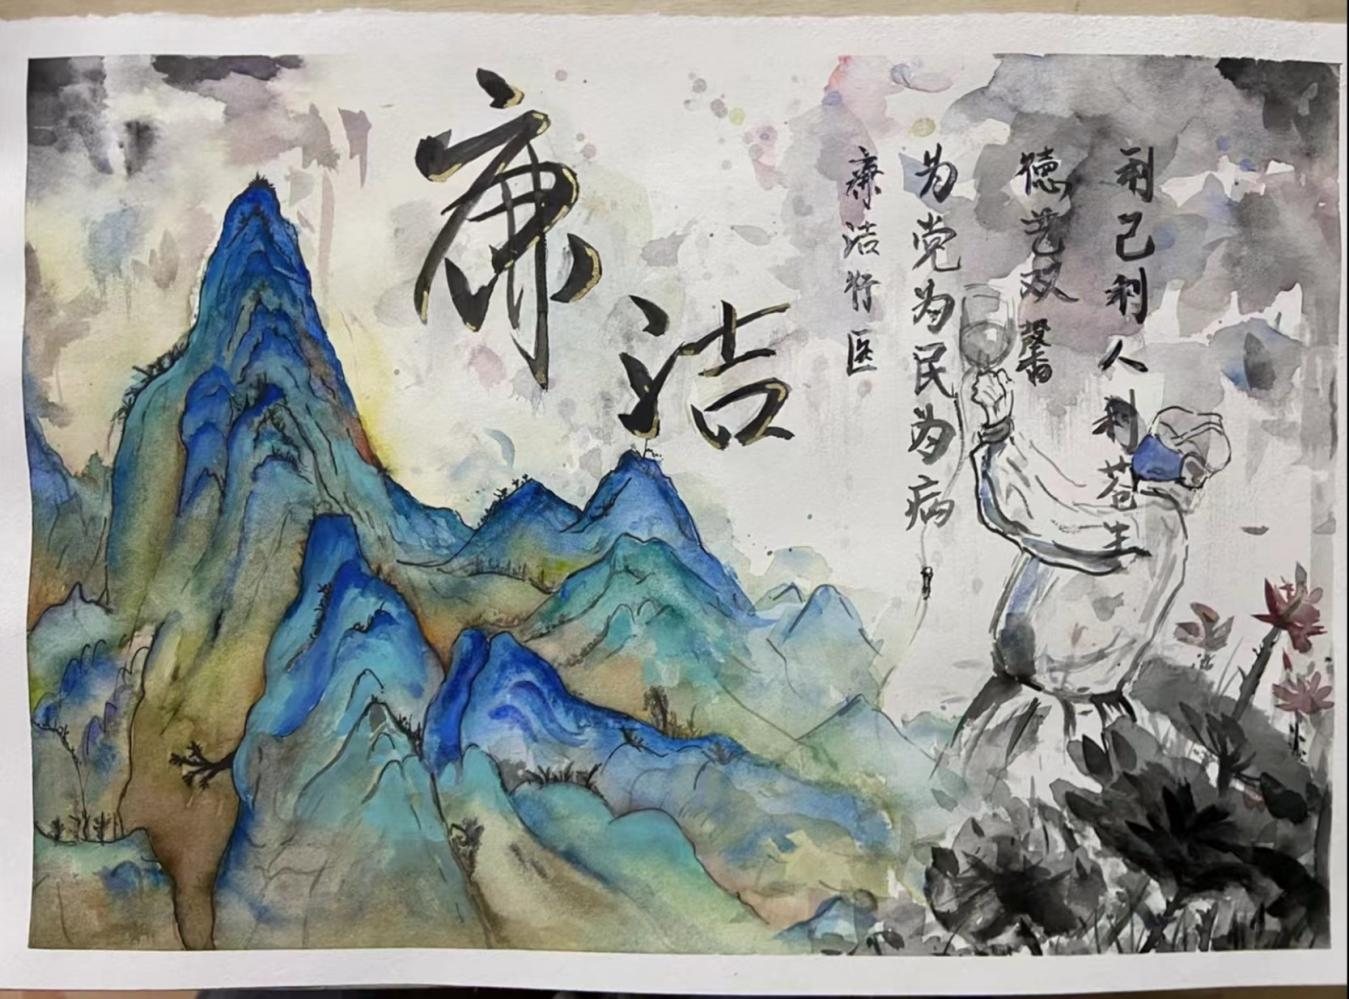 廉洁
利己利人利苍生
德艺双馨
为党为民为病
廉洁行医